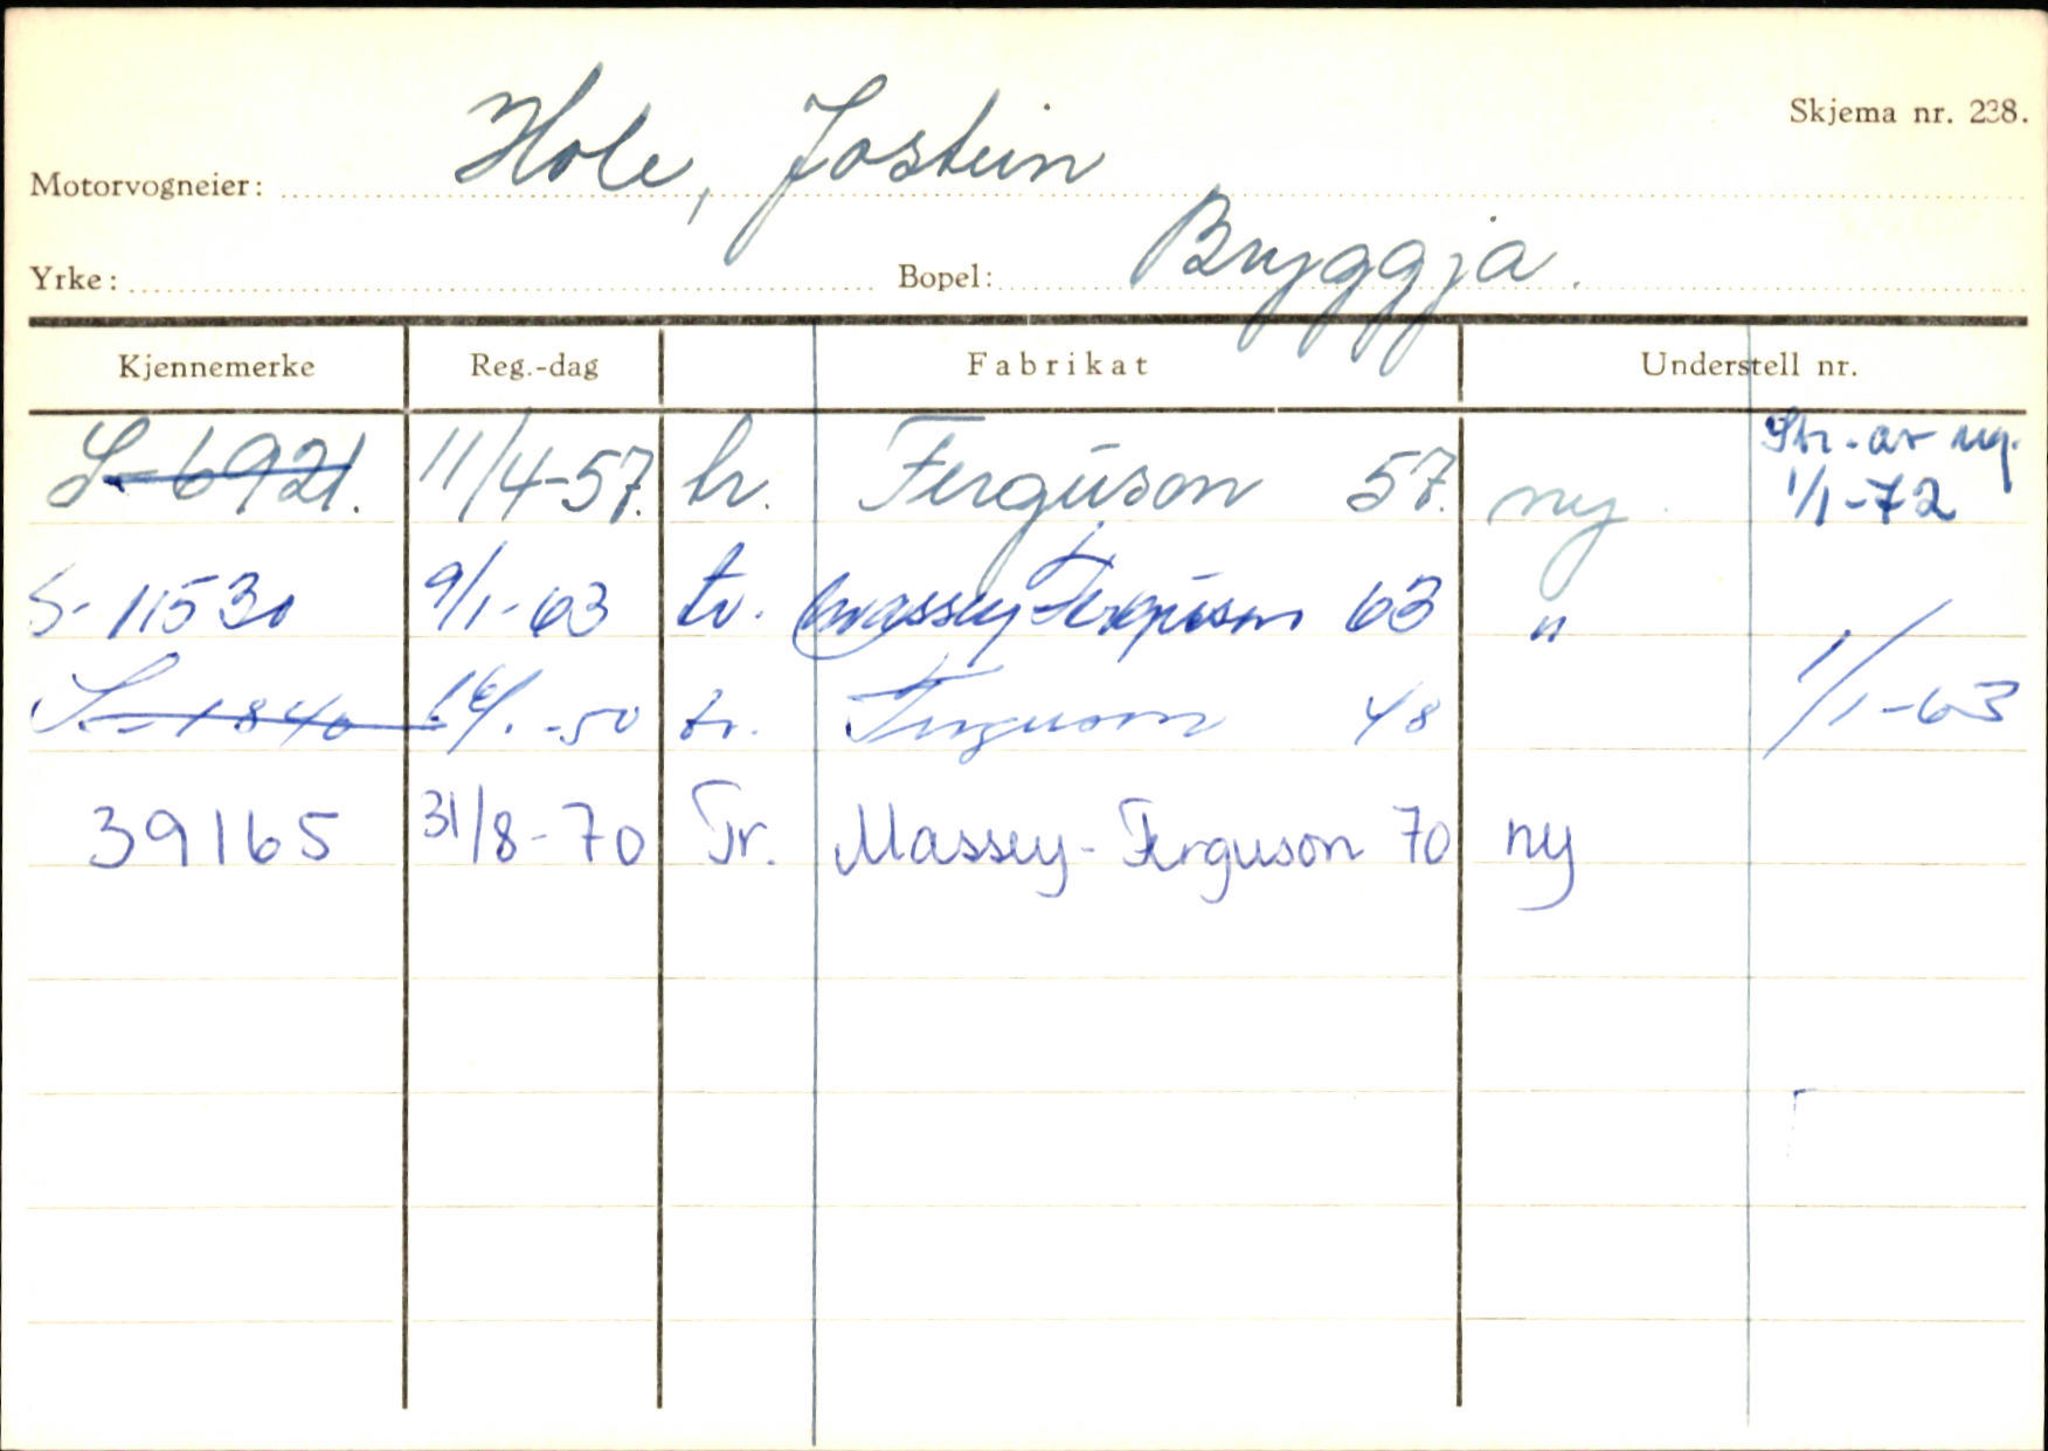 Skjema nr. 238.
Motorvogneier: Hole, Jostein
Yrke: Bopel: Bryggja.
Kjennemerke Reg.-dag Fabrikat Understell nr.
S-6921. 11/4-57. tr. Ferguson 57. ny. Str. av reg. 1/1-72
S-11530 9/1-63 tr. Massey Ferguson 63 "
S-1840 -50 tr. Ferguson 48 1/1-63
39165 31/8-70 Tr. Massey-Ferguson 70 ny